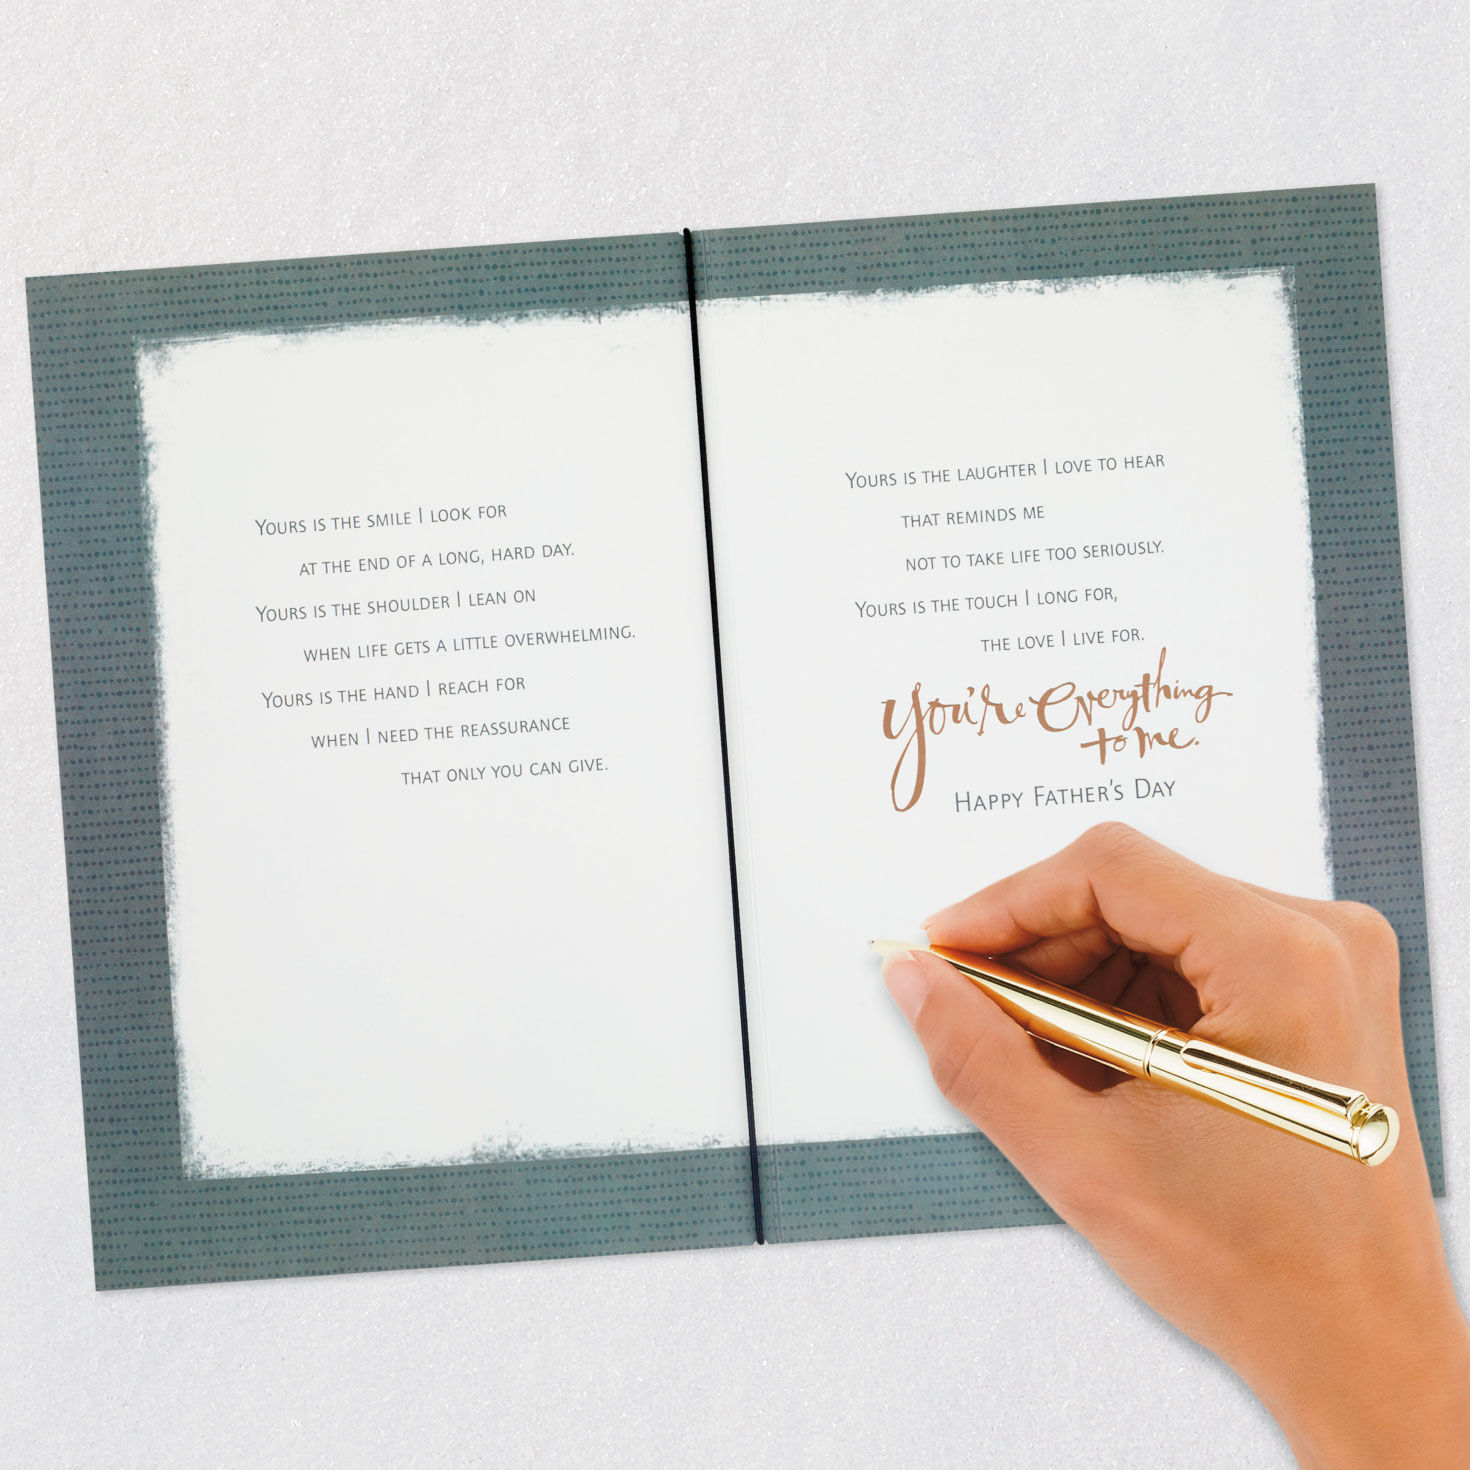 Yours is the smile I look for
at the end of a long, hard day.
Yours is the shoulder I lean on
when life gets a little overwhelming.
Yours is the hand I reach for
when I need the reassurance
that only you can give.
Yours is the laughter I love to hear
that reminds me
not to take life too seriously.
Yours is the touch I long for,
the love I live for.
You're everything
to me.
Happy Father's Day